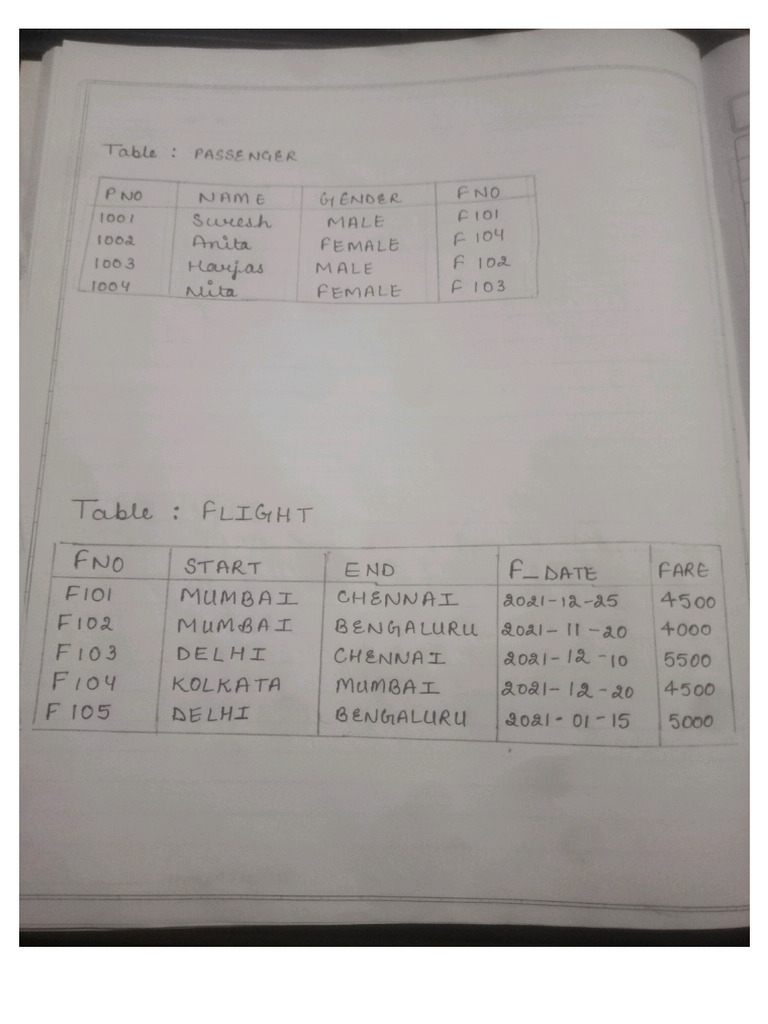 Table : PASSENGER
PNO NAME GENDER FNO
1001 Suresh MALE F101
1002 Anita FEMALE F 104
1003 Harjas MALE F 102
1004 Nita FEMALE F 103
Table : FLIGHT
FNO START END F_DATE FARE
F101 MUMBAI CHENNAI 2021-12-25 4500
F102 MUMBAI BENGALURU 2021-11-20 4000
F103 DELHI CHENNAI 2021-12-10 5500
F104 KOLKATA MUMBAI 2021-12-20 4500
F 105 DELHI BENGALURU 2021-01-15 5000